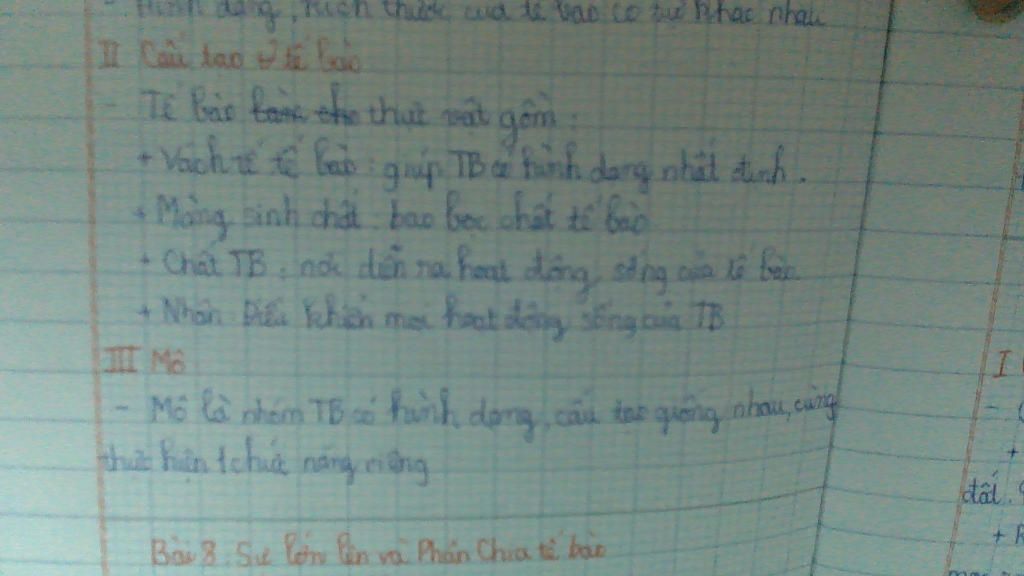 - Hình dạng, kích thước của tế bào có sự khác nhau
II Cấu tạo tế bào
- Tế bào thực vật gồm:
+ Vách tế tế bào: giúp TB có hình dạng nhất định.
+ Màng sinh chất: bao bọc chất tế bào
+ Chất TB: nơi diễn ra hoạt động sống của tế bào
+ Nhân: Điều khiển mọi hoạt động sống của TB
III Mô
- Mô là nhóm TB có hình dạng, cấu tạo giống nhau, cùng
thực hiện 1 chức năng riêng
Bài 8: Sự lớn lên và Phân Chia tế bào
I
-
+
đất.
+